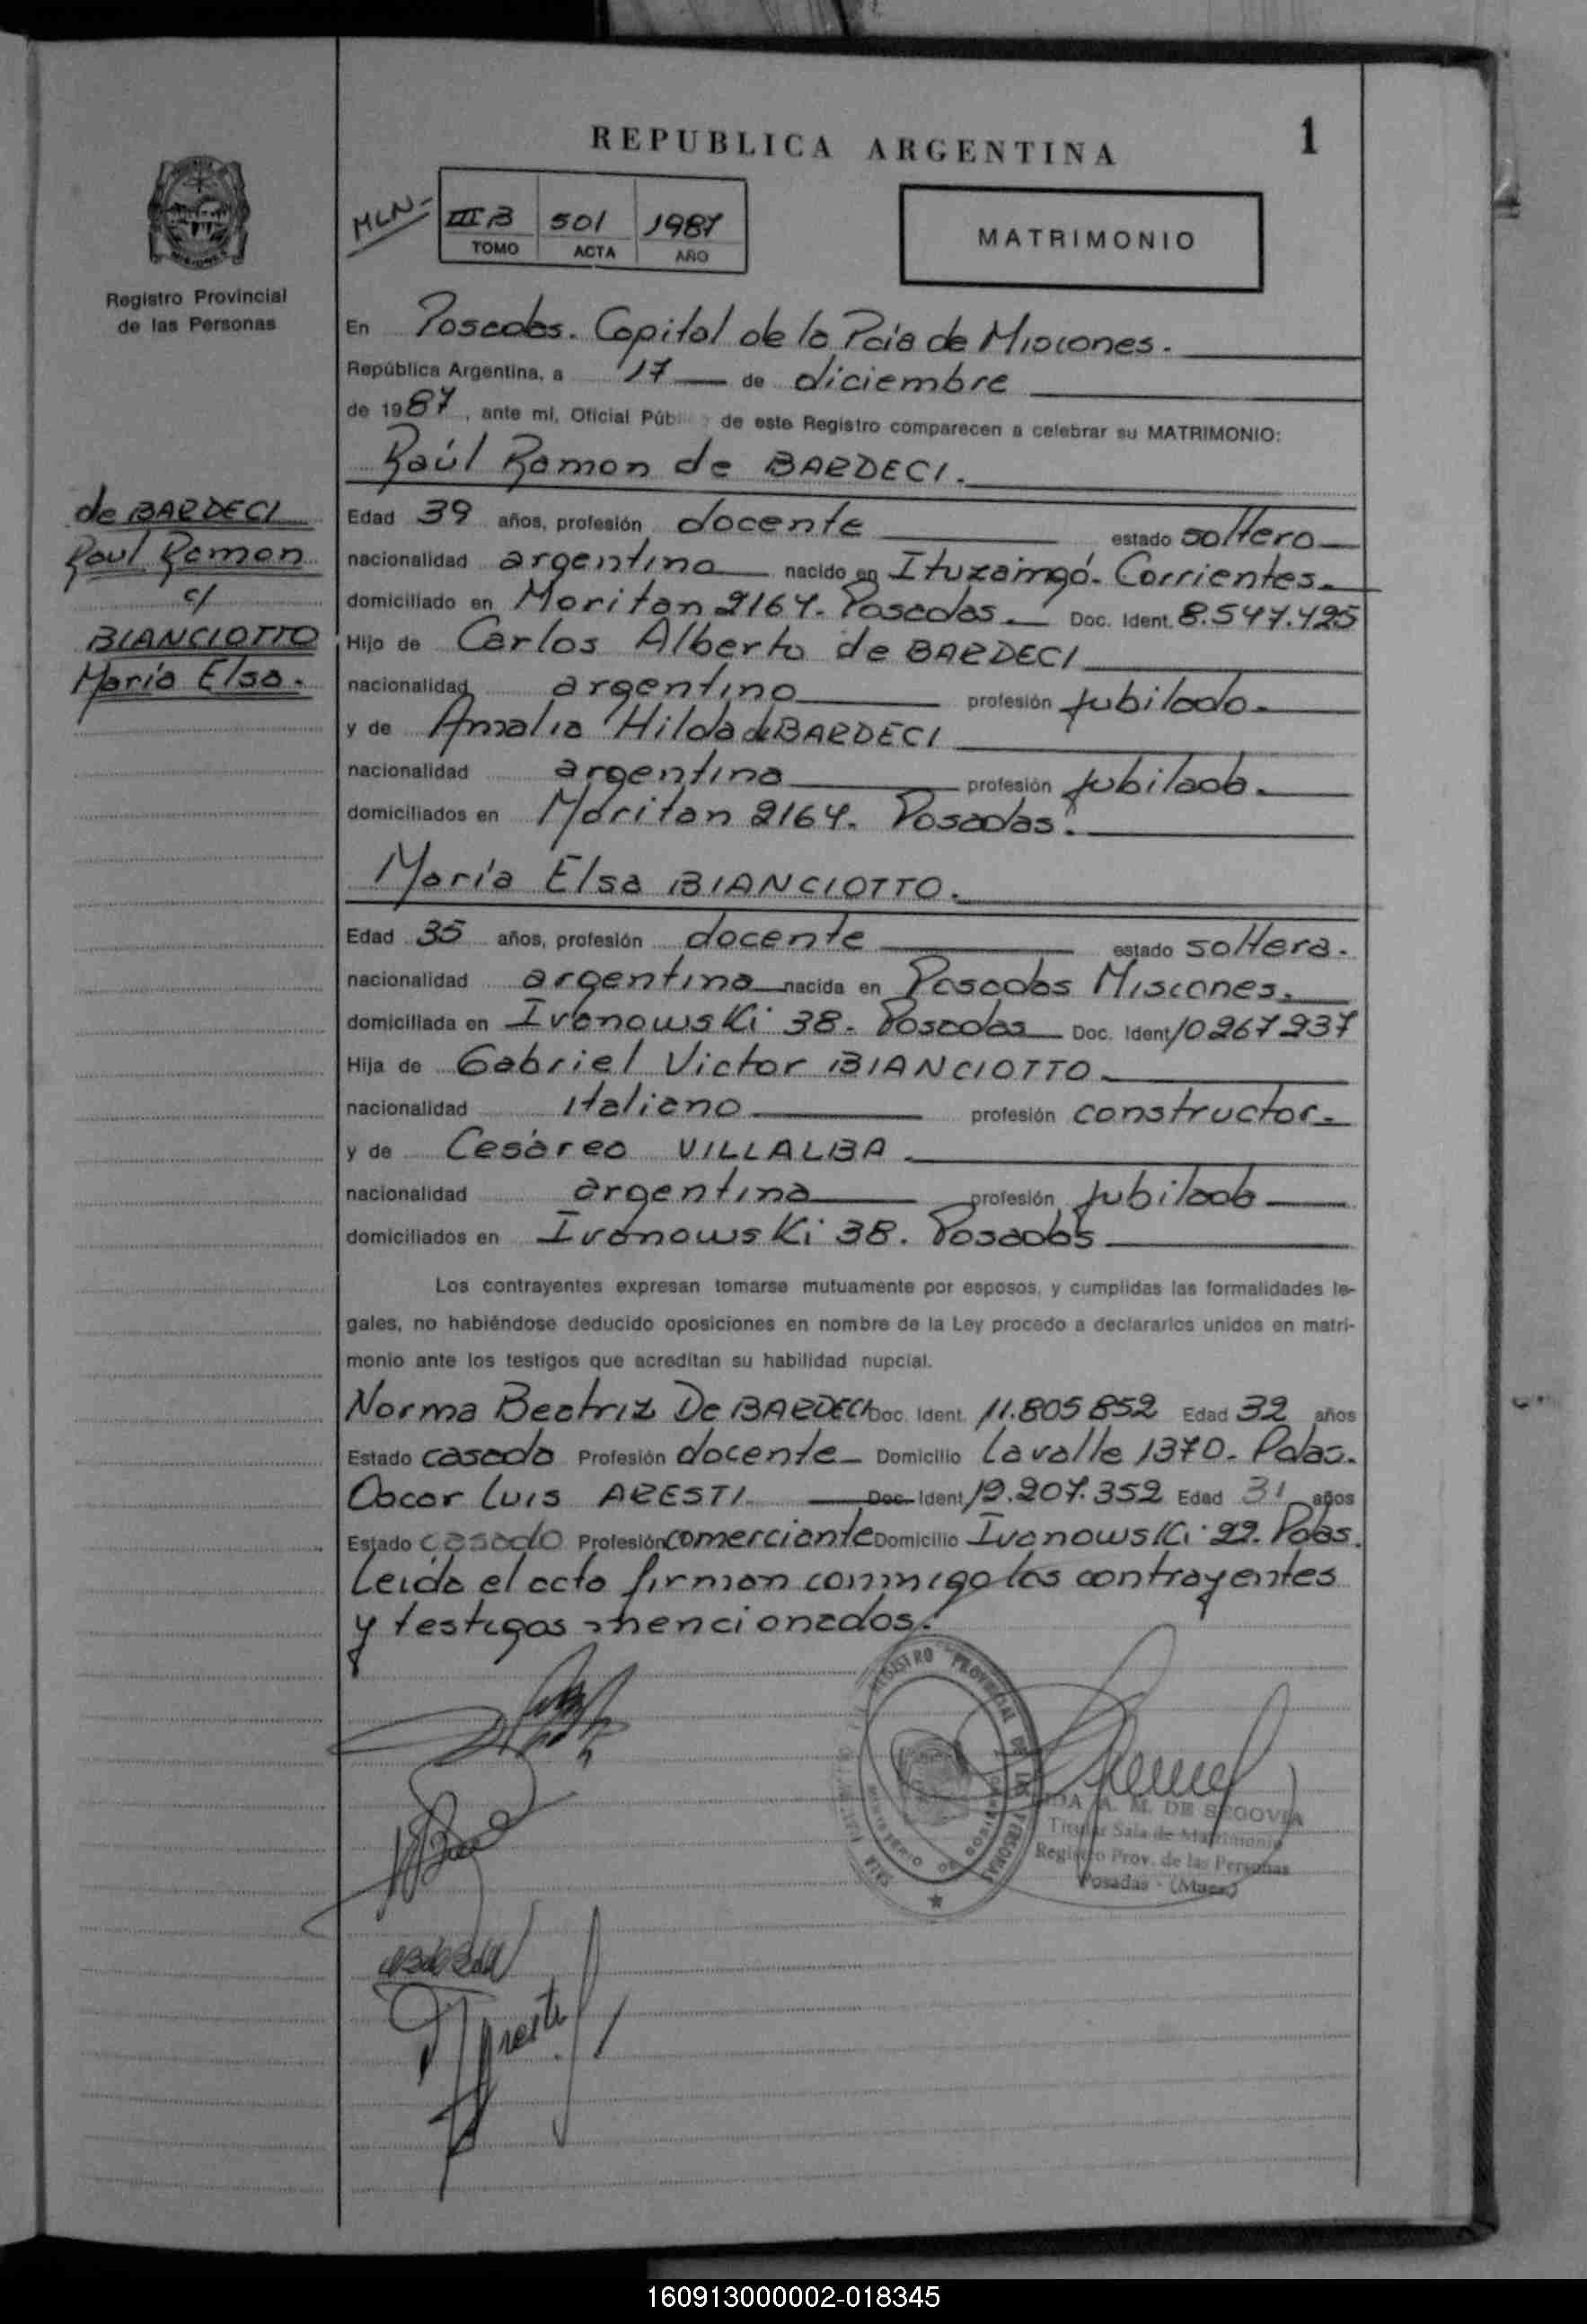 REPUBLICA ARGENTINA
1
MLN-
III B 501 1987
TOMO ACTA AÑO
MATRIMONIO
Registro Provincial
de las Personas
En Posadas. Capital de la Pcia de Misiones.
República Argentina, a 17 de diciembre
de 1987, ante mí, Oficial Púb de este Registro comparecen a celebrar su MATRIMONIO:
Raúl Ramon de BARDECI.
de BARDECI
Raul Ramon
c/
BIANCIOTTO
María Elsa.
Edad 39 años, profesión docente estado soltero
nacionalidad argentina nacido en Ituzaingó. Corrientes.
domiciliado en Moritan 2164. Posadas Doc. Ident. 8.547.425
Hijo de Carlos Alberto de BARDECI
nacionalidad argentino profesión jubilado.
y de Amalia Hilda de BARDECI
nacionalidad argentina profesión jubilada.
domiciliados en Moritan 2164. Posadas.
María Elsa BIANCIOTTO.
Edad 35 años, profesión docente estado soltera.
nacionalidad argentina nacida en Posadas Misiones.
domiciliada en Ivanowski 38. Posadas Doc. Ident 10267237
Hija de Gabriel Victor BIANCIOTTO
nacionalidad italiano profesión constructor.
y de Cesárea VILLALBA
nacionalidad argentina profesión jubilada
domiciliados en Ivanowski 38. Posadas
Los contrayentes expresan tomarse mutuamente por esposos, y cumplidas las formalidades le-
gales, no habiéndose deducido oposiciones en nombre de la Ley procedo a declararlos unidos en matri-
monio ante los testigos que acreditan su habilidad nupcial.
Norma Beatriz De BARDECI Doc. Ident. 11.805852 Edad 32 años
Estado casada Profesión docente Domicilio Lavalle 1370. Pdas.
Oscar Luis ARESTI. Doc. Ident 12.207.352 Edad 31 años
Estado casado Profesión comerciante Domicilio Ivanowski 22. Pdas.
Leida el acta firman conmigo los contrayentes
y testigos mencionados.
REGISTRO PROVINCIAL DE LAS PERSONAS
MINISTERIO DE GOBIERNO
A. M. DE SEGOVIA
Titular Sala de Matrimonio
Registro Prov. de las Personas
Posadas - (Mnes.)
160913000002-018345